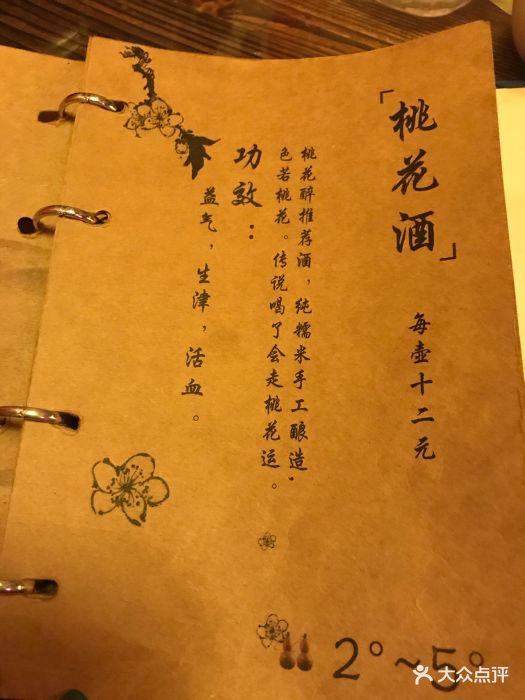 「桃花酒」
每壶十二元
桃花醉推荐酒，纯糯米手工酿造，
色若桃花。传说喝了会走桃花运。
功效：
益气，生津，活血。
2°~5°
大众点评